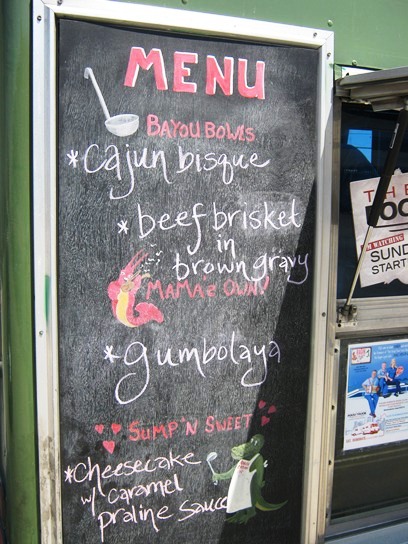 MENU
BAYOU BOWLS
*cajun bisque
*beef brisket
in
brown gravy
*gumbolaya
SUMP'N SWEET
*Cheesecake
w/ caramel
praline sauce
THE
I'M WATCHING
SUND
START